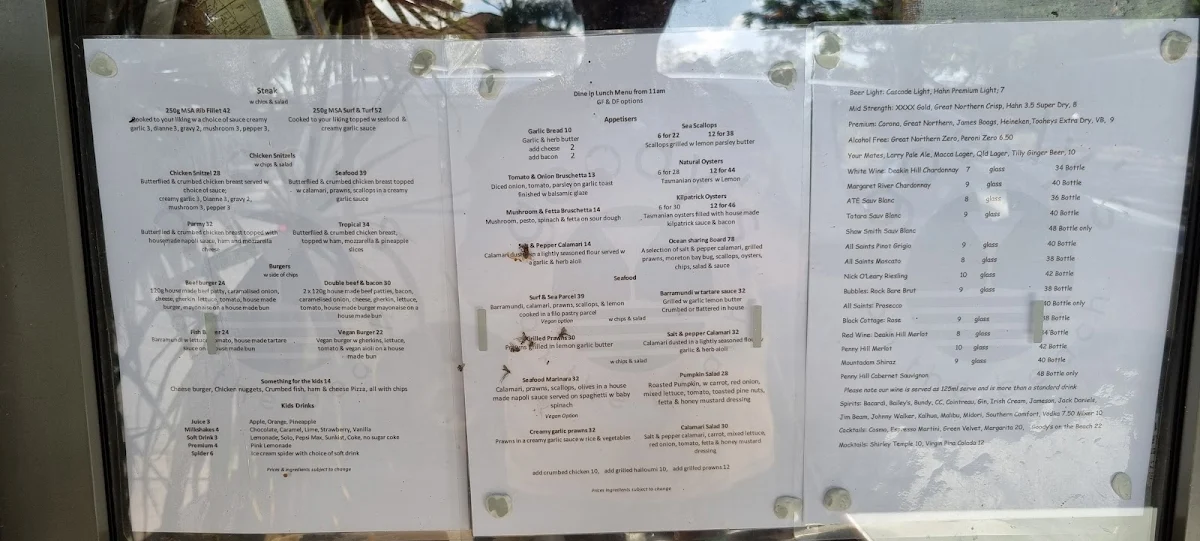 Steak
w chips & salad
250g MSA Rib Fillet 42
Cooked to your liking w a choice of sauce creamy
garlic 3, dianne 3, gravy 2, mushroom 3, pepper 3,
250g MSA Surf & Turf 52
Cooked to your liking topped w seafood &
creamy garlic sauce
Chicken Snitzels
w chips & salad
Chicken Snitzel 28
Butterflied & crumbed chicken breast served w
choice of sauce;
creamy garlic 3, Dianne 3, gravy 2,
mushroom 3, pepper 3
Seafood 39
Butterflied & crumbed chicken breast topped
w calamari, prawns, scallops in a creamy
garlic sauce
Parmy 32
Butterflied & crumbed chicken breast topped with
housemade napoli sauce, ham and mozzarella
cheese
Tropical 34
Butterflied & crumbed chicken breast,
topped w ham, mozzarella & pineapple
slices
Burgers
w side of chips
Beef burger 24
120g house made beef patty, caramalised onion,
cheese, gherkin, lettuce, tomato, house made
burger, mayonaise on a house made bun
Double beef & bacon 30
2 x 120g house made beef patties, bacon,
caramelised onion, cheese, gherkin, lettuce,
tomato, house made burger mayonaise on a
house made bun
Fish Burger 24
Barramundi w lettuce, tomato, house made tartare
sauce on house made bun
Vegan Burger 22
Vegan burger w gherkins, lettuce,
tomato & vegan aioli on a house
made bun
Something for the kids 14
Cheese burger, Chicken nuggets, Crumbed fish, ham & cheese Pizza, all with chips
Kids Drinks
Juice 3 Apple, Orange, Pineapple
Milkshakes 4 Chocolate, Caramel, Lime, Strawberry, Vanilla
Soft Drink 3 Lemonade, Solo, Pepsi Max, Sunkist, Coke, no sugar coke
Premium 4 Pink Lemonade
Spider 6 Ice cream spider with choice of soft drink
Prices & ingredients subject to change
Dine in Lunch Menu from 11am
GF & DF options
Appetisers
Garlic Bread 10
Garlic & herb butter
add cheese 2
add bacon 2
Sea Scallops
6 for 22 12 for 38
Scallops grilled w lemon parsley butter
Tomato & Onion Bruschetta 13
Diced onion, tomato, parsley on garlic toast
finished w balsamic glaze
Natural Oysters
6 for 28 12 for 44
Tasmanian oysters w Lemon
Mushroom & Fetta Bruschetta 14
Mushroom, pesto, spinach & fetta on sour dough
Kilpatrick Oysters
6 for 30 12 for 46
Tasmanian oysters filled with house made
kilpatrick sauce & bacon
Salt & Pepper Calamari 14
Calamari dusted in a lightly seasoned flour served w
a garlic & herb aioli
Ocean sharing Board 78
A selection of salt & pepper calamari, grilled
prawns, moreton bay bug, scallops, oysters,
chips, salad & sauce
Seafood
Surf & Sea Parcel 39
Barramundi, calamari, prawns, scallops, & lemon
cooked in a filo pastry parcel
Vegan option
Barramundi w tartare sauce 32
Grilled w garlic lemon butter
Crumbed or Battered in house
w chips & salad
Grilled Prawns 30
Prawns grilled in lemon garlic butter
Salt & pepper Calamari 32
Calamari dusted in a lightly seasoned flour
garlic & herb aioli
w chips & salad
Seafood Marinara 32
Calamari, prawns, scallops, olives in a house
made napoli sauce served on spaghetti w baby
spinach
Vegan Option
Pumpkin Salad 28
Roasted Pumpkin, w carrot, red onion,
mixed lettuce, tomato, toasted pine nuts,
fetta & honey mustard dressing
Creamy garlic prawns 32
Prawns in a creamy garlic sauce w rice & vegetables
Calamari Salad 30
Salt & pepper calamari, carrot, mixed lettuce,
red onion, tomato, fetta & honey mustard
dressing
add crumbed chicken 10, add grilled halloumi 10, add grilled prawns 12
Prices ingredients subject to change
Beer Light: Cascade Light, Hahn Premium Light; 7
Mid Strength: XXXX Gold, Great Northern Crisp, Hahn 3.5 Super Dry, 8
Premium: Corona, Great Northern, James Boags, Heineken, Tooheys Extra Dry, VB, 9
Alcohol Free: Great Northern Zero, Peroni Zero 6.50
Your Mates, Larry Pale Ale, Macca Lager, Qld Lager, Tilly Ginger Beer, 10
White Wine: Deakin Hill Chardonnay 7 glass 34 Bottle
Margaret River Chardonnay 9 glass 40 Bottle
ATE Sauv Blanc 8 glass 36 Bottle
Totara Sauv Blanc 9 glass 40 Bottle
Shaw Smith Sauv Blanc 48 Bottle only
All Saints Pinot Grigio 9 glass 40 Bottle
All Saints Moscato 8 glass 38 Bottle
Nick O'Leary Riesling 10 glass 42 Bottle
Bubbles: Rock Bare Brut 9 glass 38 Bottle
All Saints: Prosecco Bottle only
Black Cottage: Rose 9 glass Bottle
Red Wine: Deakin Hill Merlot 8 glass Bottle
Penny Hill Merlot 10 glass 42 Bottle
Mountadam Shiraz 9 glass 40 Bottle
Penny Hill Cabernet Sauvignon 48 Bottle only
Please note our wine is served as 125ml serve and is more than a standard drink
Spirits: Bacardi, Bailey's, Bundy, CC, Cointreau, Gin, Irish Cream, Jameson, Jack Daniels,
Jim Beam, Johnny Walker, Kalhua, Malibu, Midori, Southern Comfort, Vodka 7.50 Mixer 10
Cocktails: Cosmo, Espresso Martini, Green Velvet, Margarita 20, on the Beach 22
Mocktails: Shirley Temple 10, Virgin Pina Colada 12